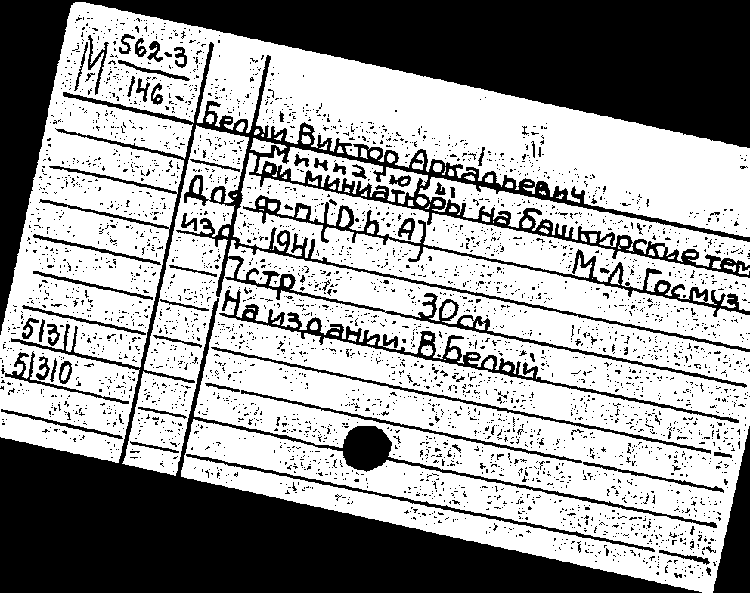 М 562-3
146
Белый Виктор Аркадьевич.
Миниатюры
Три миниатюры на башкирские тем
Для ф-п. [D, h, A]. М-Л, Госмуз
изд., 1941.
7 стр. 30 см
На издании: В. Белый
51311
51310